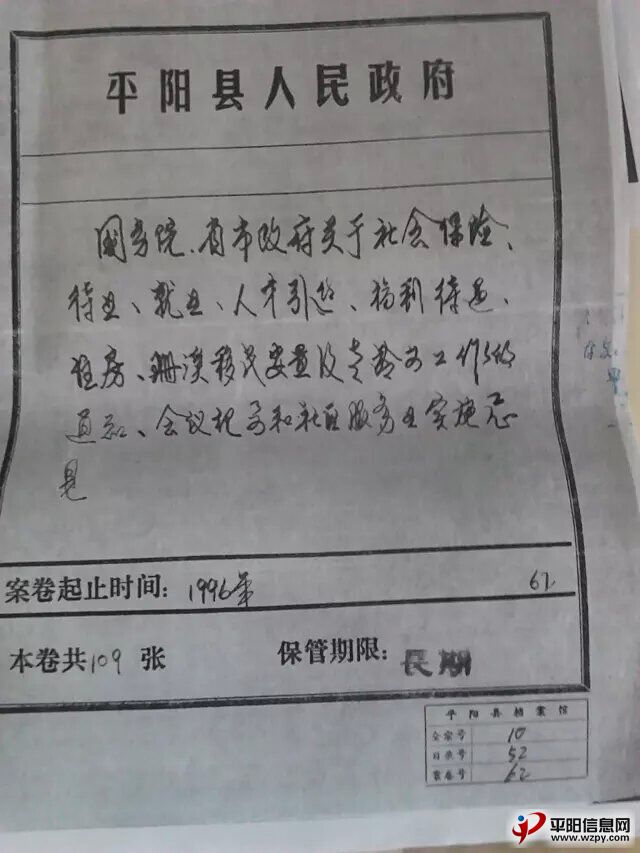 平阳县人民政府
国务院、省市政府关于社会保险、
待业、就业、人才引进、福利待遇、
住房、珊溪移民安置及老龄委工作的
通知、会议纪要和社区服务业实施意
见
案卷起止时间：1996年 62
本卷共109张 保管期限：长期
平阳县档案馆
全宗号 10
目录号 52
案卷号 62
平阳信息网
www.wzpy.com